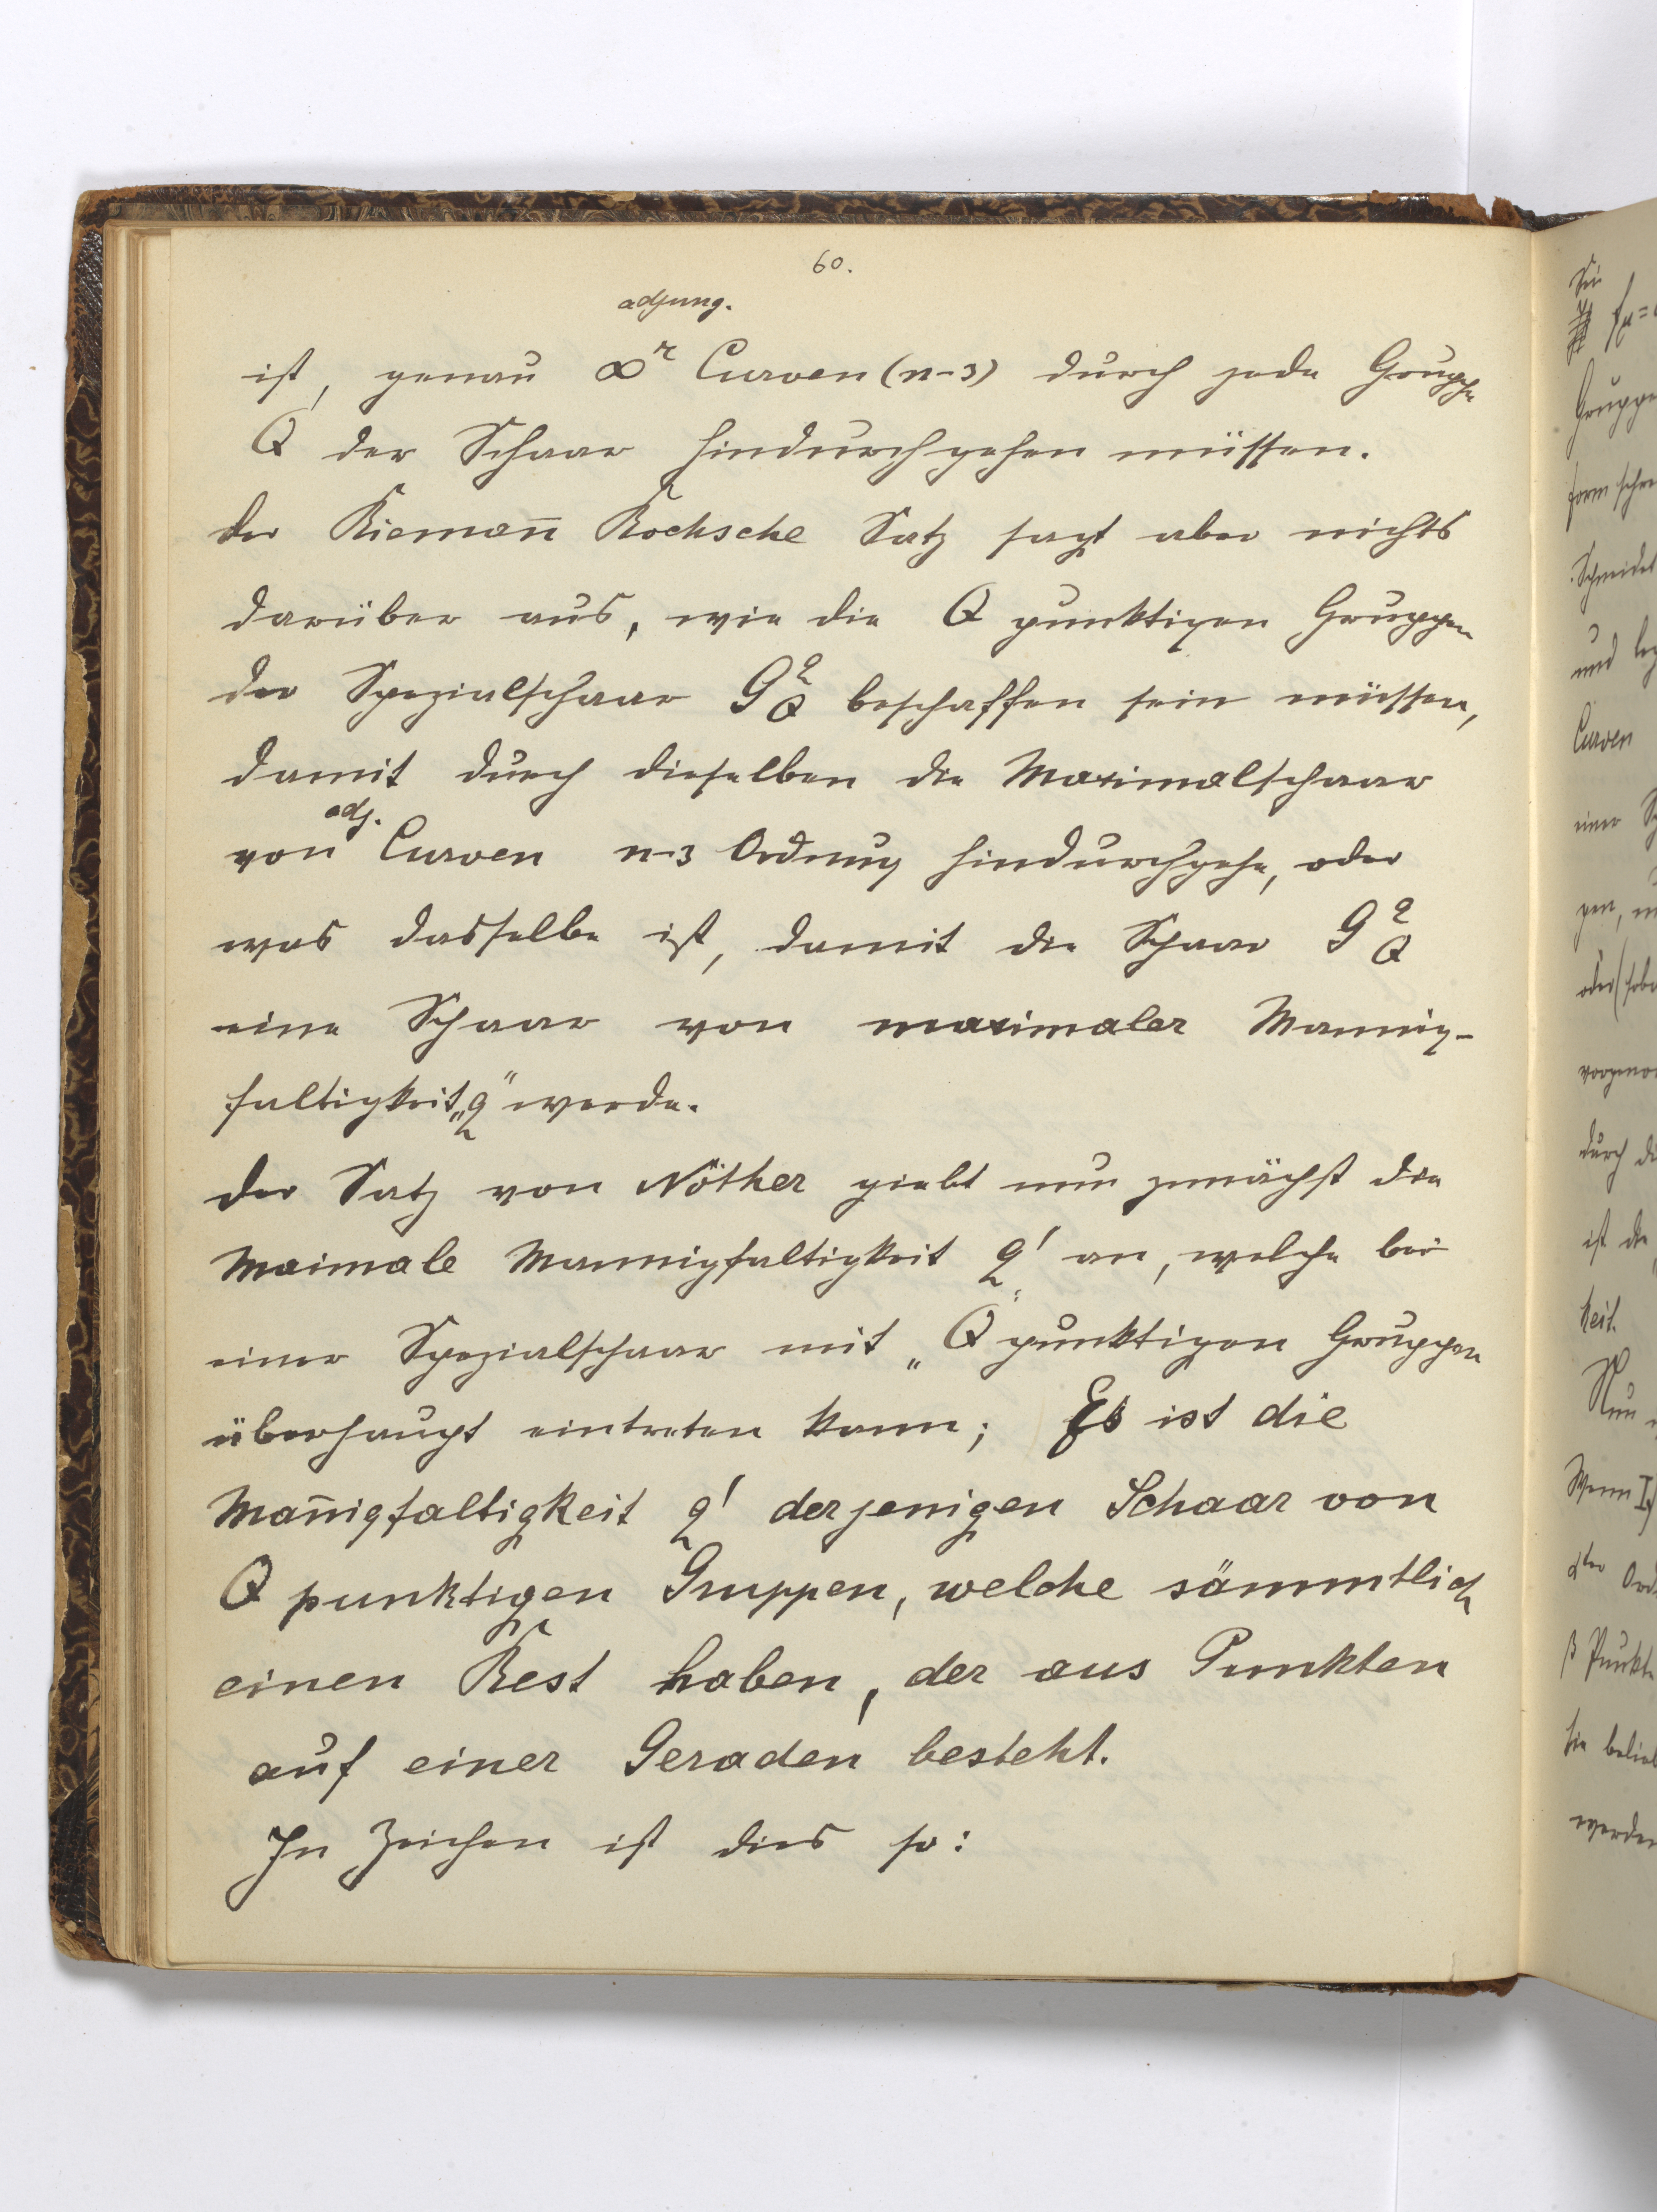 60.
adjung.
ist, genau ∞^r Curven (n-3) durch jede Gruppe
Q der Schaar hindurchgehen müssen.
Der Riemañ Rochsche Satz sagt aber nichts
darüber aus, wie die Q punktigen Gruppen
der Spezialschaar G_Q^q beschaffen sein müssen,
damit durch dieselben die Maximalschaar
adj.
von Curven n-3 Ordnung hindurchgehe, oder
was dasselbe ist, damit die Schaar G_Q^q
eine Schaar von maximaler Mannig-
faltigkeit „q“ werde.
Der Satz von Nöther giebt nun zunächst die
Maximale Mannigfaltigkeit q' an, welche bei
einer Spezialschaar mit „Q“ punktigen Gruppen
überhaupt eintreten kann; Es ist die
Mañigfaltigkeit q' derjenigen Schaar von
Q punktigen Gruppen, welche sämmtlich
einen Rest haben, der aus Punkten
auf einer Geraden besteht.
In Zeichen ist dies so:
Sei
Gruppe
Schneidet
und
Curven
einer
durch
ist die
keit.
Nun
Wenn I)
β Punkte
werden